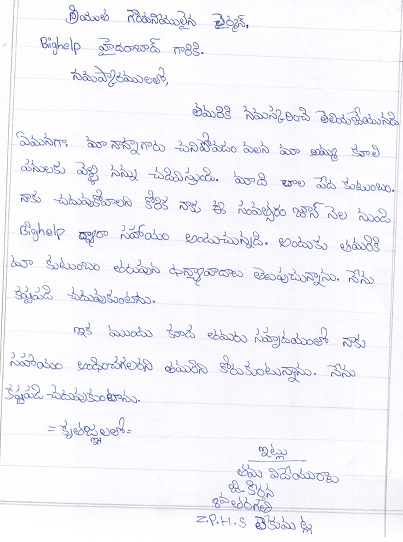 శ్రీయుత గౌరవనీయులైన ఛైర్మన్,
Bighelp హైదరాబాద్ గారికి.
నమస్కారములతో,
తమరికి నమస్కరించి తెలియజేయునది
ఏమనగా; మా నాన్నగారు చనిపోవడం వలన మా అమ్మ కూలి
పనులకు వెళ్ళి నన్ను చదివిస్తుంది. మాది చాల పేద కుటుంబం.
నాకు చదువుకోవాలని కోరిక నాకు ఈ సంవత్సరం జూన్ నెల నుండి
Bighelp ద్వారా సహాయం అందుచున్నది. అందుకు తమరికి
మా కుటుంబం తరుపున ధన్యావాదాలు తెలుపుచున్నాను. నేను
కష్టపడి చదువుకుంటాను.
ఇక ముందు కూడ తమరు సహృదయంతో నాకు
సహాయం అందించగలరని తమరిని కోరుకుంటున్నాను. నేను
కష్టపడి చదువుకుంటాను.
= కృతజ్ఞలతో=
ఇట్లు
తమ విదేయురాలు
తరగతి
Z.P.H.S టేకుమట్ల